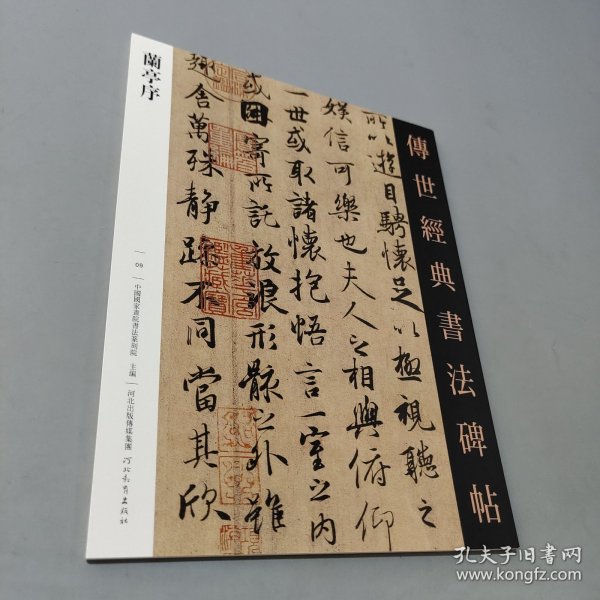 傳世經典書法碑帖
所以遊目騁懷足以極視聽之
娛信可樂也夫人之相與俯仰
一世或取諸懷抱悟言一室之內
或因寄所託放浪形骸之外雖
趣舍萬殊靜躁不同當其欣
蘭亭序
09
中國國家畫院書法篆刻院 主編
河北出版傳媒集團 河北教育出版社
孔夫子旧书网
www.kongfz.com